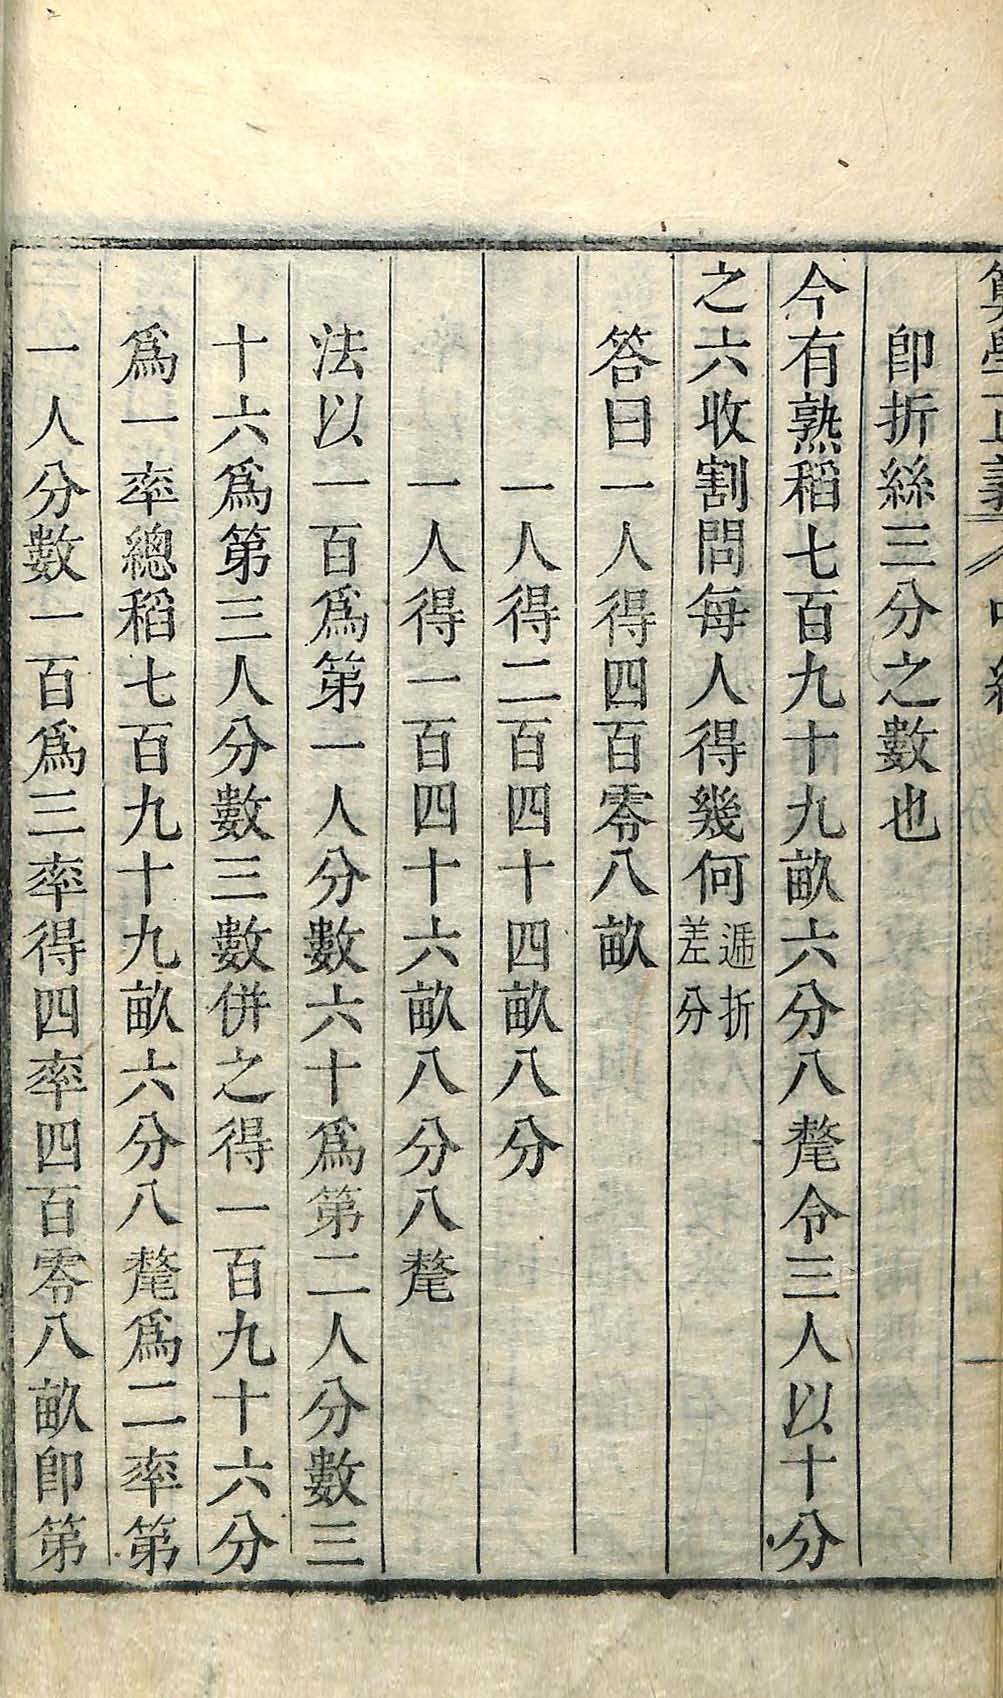 即折絲三分之數也
今有熟稻七百九十九畝六分八氂令三人以十分
之六收割問每人得幾何遞折差分
答曰一人得四百零八畝
一人得二百四十四畝八分
一人得一百四十六畝八分八氂
法以一百爲第一人分數六十爲第二人分數三
十六爲第三人分數三數併之得一百九十六分
爲一率總稻七百九十九畝六分八氂爲二率第
一人分數一百爲三率得四率四百零八畝即第